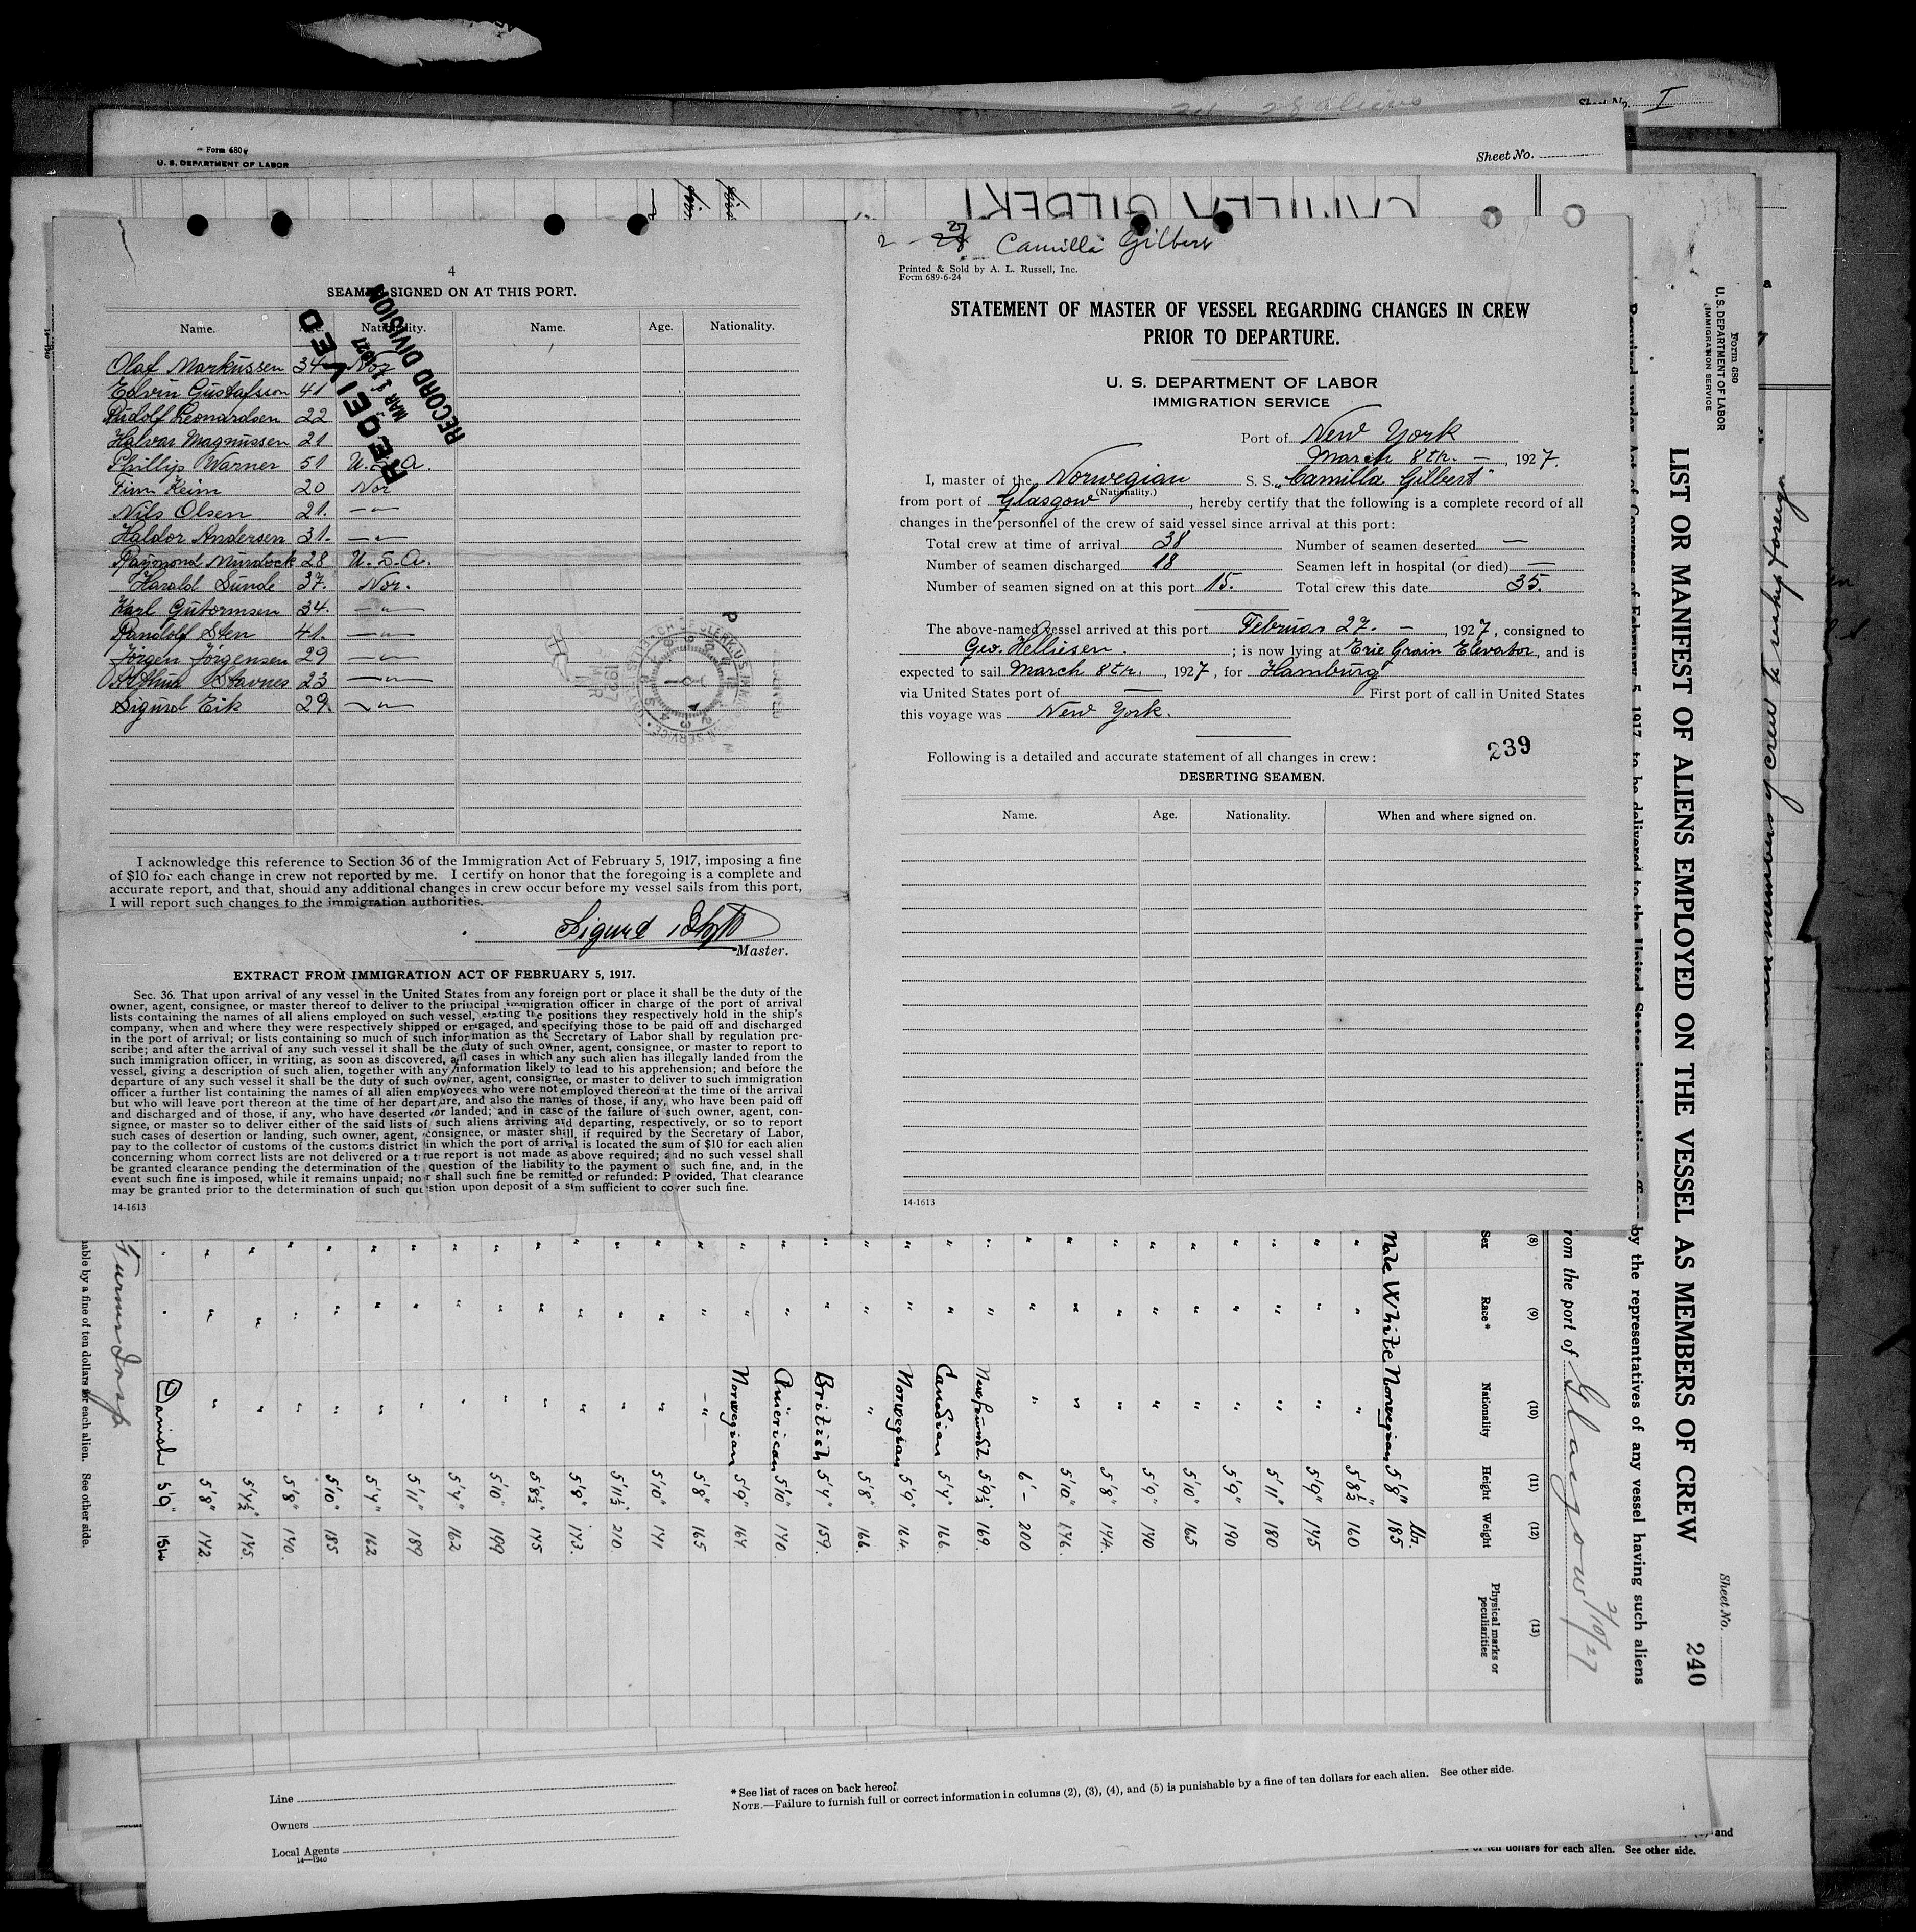 Form 680
U. S. DEPARTMENT OF LABOR
Sheet No.
28 aliens
Sheet No. I
CAMILLA GILBERT
4
SEAMEN SIGNED ON AT THIS PORT.
Name. Age. Nationality. Name. Age. Nationality.
Olaf Markussen 34 Nor
Edvin Gustafsson 41
Rudolf Leonardsen 22
Halvar Magnussen 21
Phillip Warner 51 U.S.A.
Finn Keim 20 Nor
Nils Olsen 21. —"—
Haldor Andersen 31. —"—
Raymond Murdock 28 U.S.A.
Harold Sunde 37. Nor.
Karl Gutormsen 34. —"—
Randolf Sten 41. —"—
Jörgen Jörgensen 29 —"—
Arthur Stavnes 23 —"—
Sigurd Eik 29. —"—
RECEIVED
MAR 11 1927
RECORD DIVISION
I acknowledge this reference to Section 36 of the Immigration Act of February 5, 1917, imposing a fine
of $10 for each change in crew not reported by me. I certify on honor that the foregoing is a complete and
accurate report, and that, should any additional changes in crew occur before my vessel sails from this port,
I will report such changes to the immigration authorities.
Sigurd
Master.
EXTRACT FROM IMMIGRATION ACT OF FEBRUARY 5, 1917.
Sec. 36. That upon arrival of any vessel in the United States from any foreign port or place it shall be the duty of the
owner, agent, consignee, or master thereof to deliver to the principal immigration officer in charge of the port of arrival
lists containing the names of all aliens employed on such vessel, stating the positions they respectively hold in the ship's
company, when and where they were respectively shipped or engaged, and specifying those to be paid off and discharged
in the port of arrival; or lists containing so much of such information as the Secretary of Labor shall by regulation pre-
scribe; and after the arrival of any such vessel it shall be the duty of such owner, agent, consignee, or master to report to
such immigration officer, in writing, as soon as discovered, all cases in which any such alien has illegally landed from the
vessel, giving a description of such alien, together with any information likely to lead to his apprehension; and before the
departure of any such vessel it shall be the duty of such owner, agent, consignee, or master to deliver to such immigration
officer a further list containing the names of all alien employees who were not employed thereon at the time of the arrival
but who will leave port thereon at the time of her departure, and also the names of those, if any, who have been paid off
and discharged and of those, if any, who have deserted or landed; and in case of the failure of such owner, agent, con-
signee, or master so to deliver either of the said lists of such aliens arriving and departing, respectively, or so to report
such cases of desertion or landing, such owner, agent, consignee, or master shall, if required by the Secretary of Labor,
pay to the collector of customs of the customs district in which the port of arrival is located the sum of $10 for each alien
concerning whom correct lists are not delivered or a true report is not made as above required; and no such vessel shall
be granted clearance pending the determination of the question of the liability to the payment of such fine, and, in the
event such fine is imposed, while it remains unpaid; nor shall such fine be remitted or refunded: Provided, That clearance
may be granted prior to the determination of such question upon deposit of a sum sufficient to cover such fine.
14-1613
2 - 28 Camilla Gilbert
Printed & Sold by A. L. Russell, Inc.
Form 689-6-24
STATEMENT OF MASTER OF VESSEL REGARDING CHANGES IN CREW
PRIOR TO DEPARTURE.
U. S. DEPARTMENT OF LABOR
IMMIGRATION SERVICE
Port of New York
March 8th. —, 1927.
I, master of the Norwegian S. S. "Camilla Gilbert"
(Nationality.)
from port of Glasgow, hereby certify that the following is a complete record of all
changes in the personnel of the crew of said vessel since arrival at this port:
Total crew at time of arrival 38 Number of seamen deserted —
Number of seamen discharged 18 Seamen left in hospital (or died) —
Number of seamen signed on at this port 15. Total crew this date 35.
The above-named vessel arrived at this port Februar 27. —, 1927, consigned to
Geo. Helliesen. ; is now lying at Erie Grain Elevator, and is
expected to sail March 8th., 1927, for Hamburg
via United States port of — First port of call in United States
this voyage was New York.
239
Following is a detailed and accurate statement of all changes in crew:
DESERTING SEAMEN.
Name. Age. Nationality. When and where signed on.
14-1613
Form 680
U. S. DEPARTMENT OF LABOR
IMMIGRATION SERVICE
Sheet No.
240
LIST OR MANIFEST OF ALIENS EMPLOYED ON THE VESSEL AS MEMBERS OF CREW
by the representatives of any vessel having such aliens
from the port of Glasgow 2/10/27
(8) (9) (10) (11) (12) (13)
Sex Race* Nationality Height Weight Physical marks or peculiarities
Male White Norwegian 5'8" 185 lbs.
" " " 5'8½" 160
" " " 5'9" 145
" " " 5'11" 180
" " " 5'9" 190
" " " 5'10" 165
" " " 5'9" 140
" " " 5'8" 144.
" " " 5'10" 176.
" " " 6'- 200
" " Newfoundl. 5'9½" 169.
" " Canadian 5'7" 166
" " Norwegian 5'9" 164.
" " " 5'8" 166.
" " British 5'7" 159.
" " American 5'10" 140.
" " Norwegian 5'9" 164
" " —"— 5'8" 165
" " " 5'10" 171
" " " 5'11½" 210.
" " " 5'8" 143.
" " " 5'8½" 175
" " " 5'10" 199
" " " 5'7" 162
" " " 5'11" 189
" " " 5'7" 162
" " " 5'10" 185
" " " 5'8" 140.
" " " 5'7½" 175.
" " " 5'8" 142.
" " Danish 5'9" 154
able by a fine of ten dollars for each alien. See other side.
members of crew to reship foreign
Line
Owners
Local Agents
14—1240
* See list of races on back hereof.
NOTE.—Failure to furnish full or correct information in columns (2), (3), (4), and (5) is punishable by a fine of ten dollars for each alien. See other side.
and
of ten dollars for each alien. See other side.